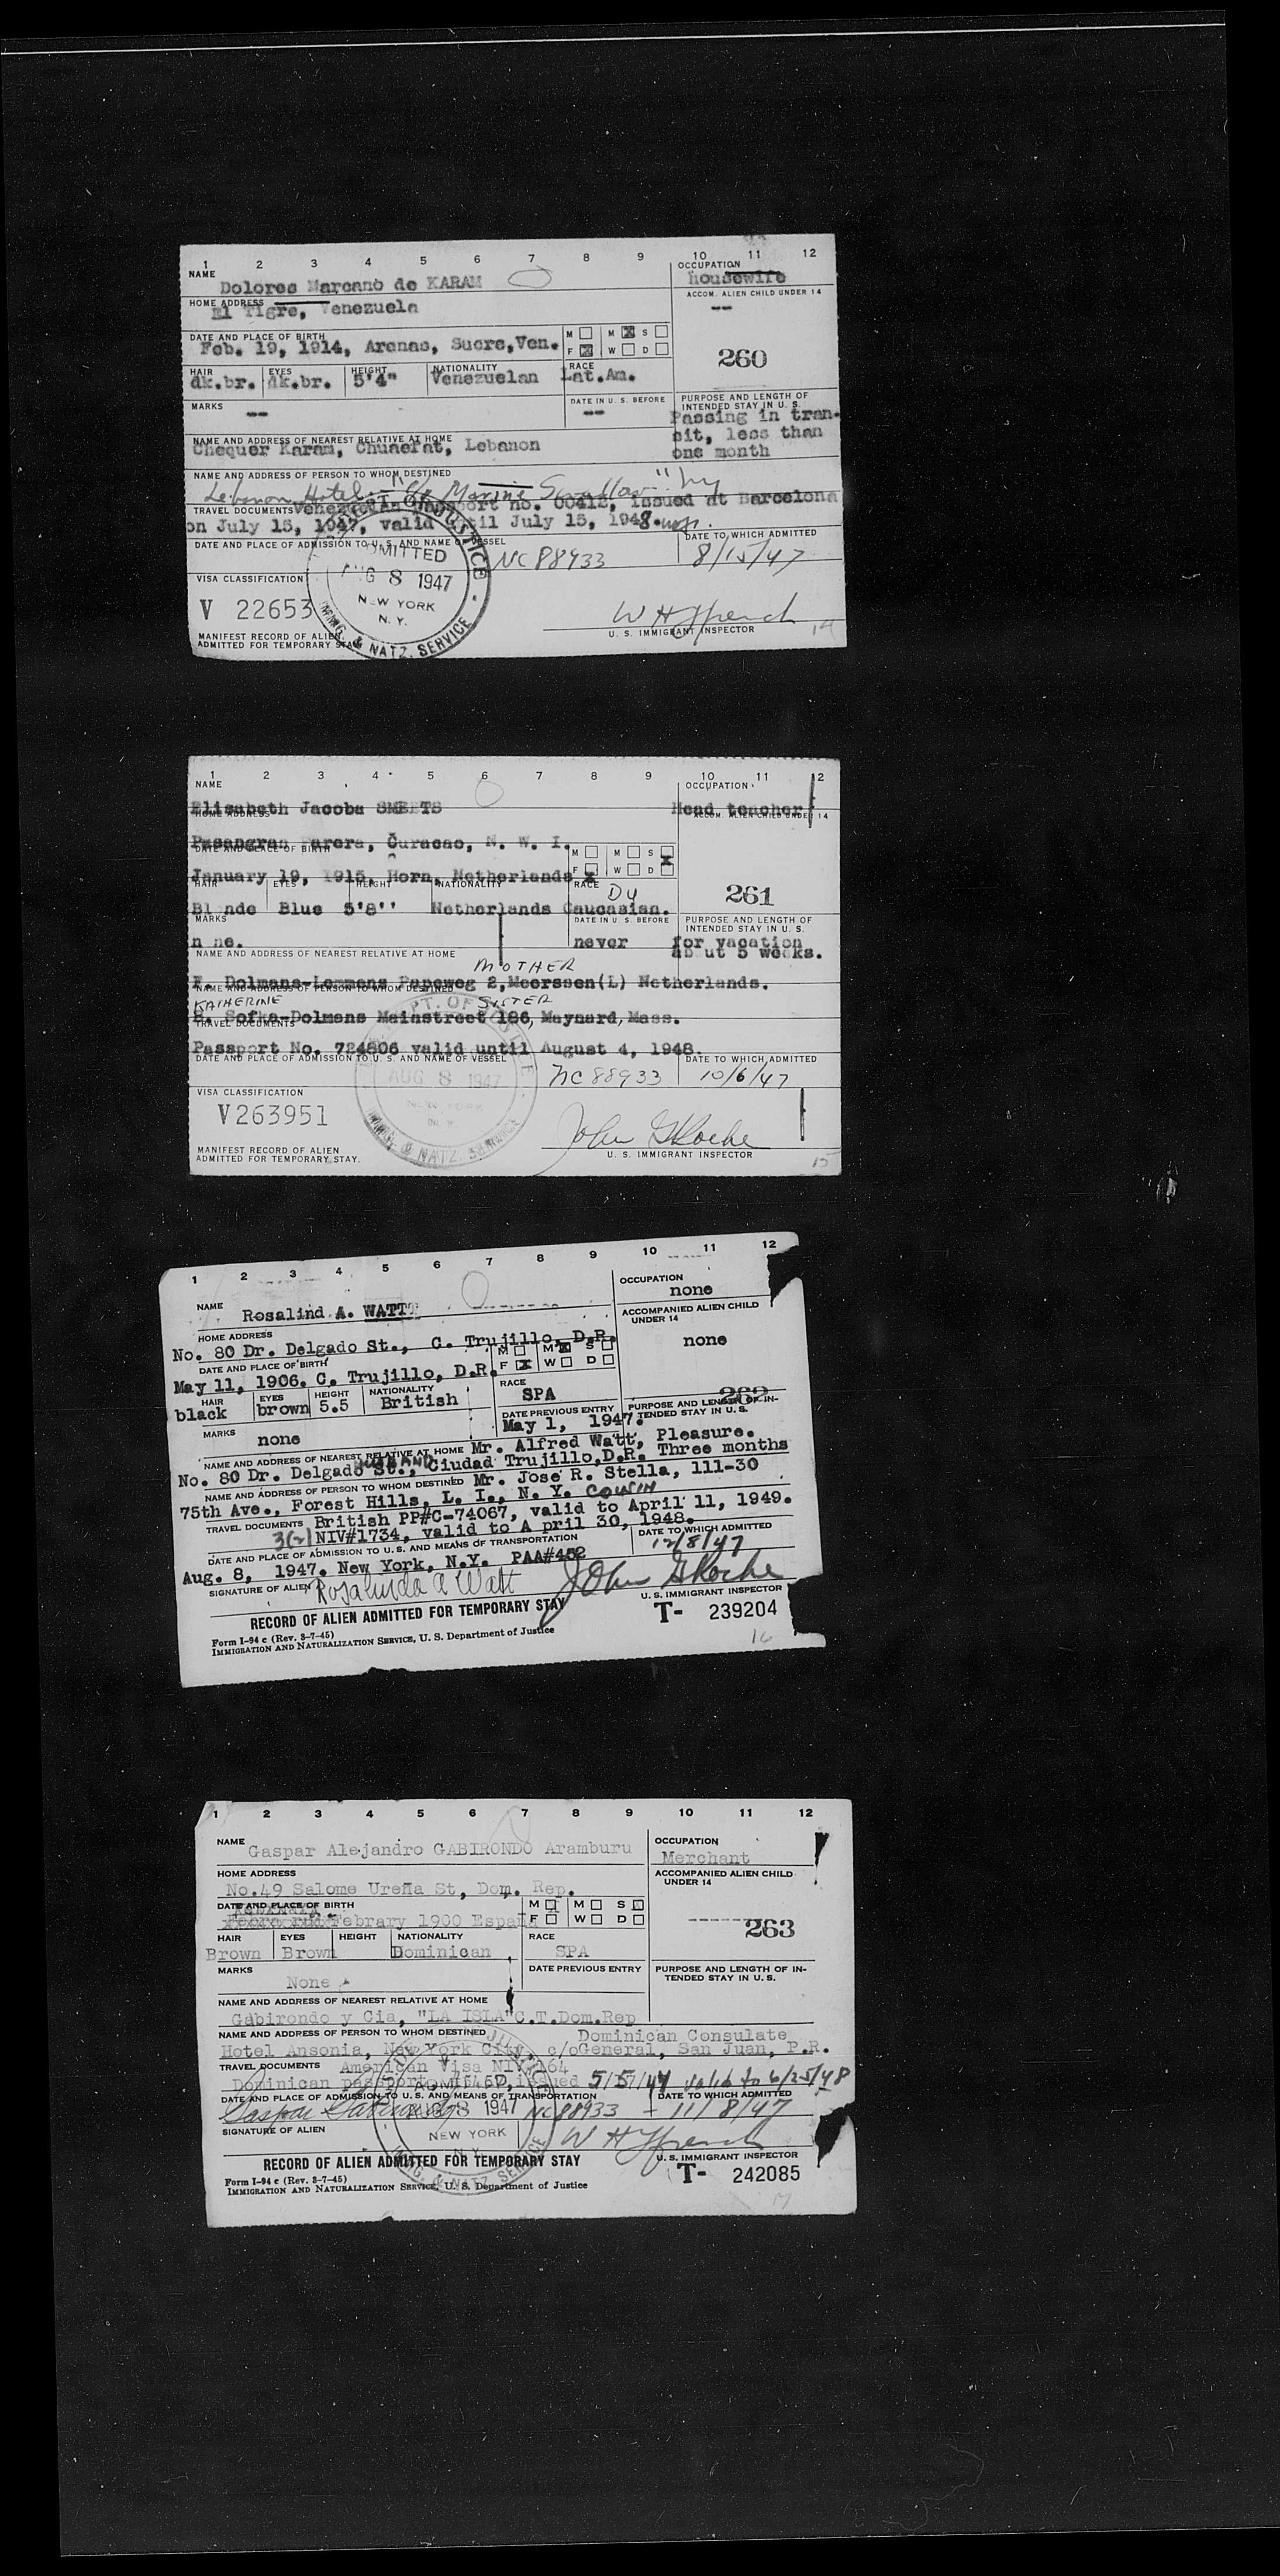 1 2 3 4 5 6 7 8 9 10 11 12
NAME OCCUPATION
Dolores Marcano de KARAM housewife
HOME ADDRESS ACCOM. ALIEN CHILD UNDER 14
El Tigre, Venezuela --
DATE AND PLACE OF BIRTH M M X S
Feb. 19, 1914, Arenas, Sucre, Ven. F X W D
260
HAIR EYES HEIGHT NATIONALITY RACE
dk.br. dk.br. 5'4" Venezuelan Lat.Am.
MARKS DATE IN U. S. BEFORE PURPOSE AND LENGTH OF INTENDED STAY IN U. S.
-- -- Passing in tran-
sit, less than
one month
NAME AND ADDRESS OF NEAREST RELATIVE AT HOME
Chequer Karam, Chuaefat, Lebanon
NAME AND ADDRESS OF PERSON TO WHOM DESTINED
Lebanon Hotel "Marine" ny
TRAVEL DOCUMENTS Venezuelan passport no. 00412, issued at Barcelona
on July 15, 1947, valid until July 15, 1948.
DATE AND PLACE OF ADMISSION TO U. S. AND NAME OF VESSEL DATE TO WHICH ADMITTED
NC 88933 8/15/47
ADMITTED
AUG 8 1947
NEW YORK
N. Y.
IMMIG. & NATZ. SERVICE
VISA CLASSIFICATION
V 22653
W H Ffrench
U. S. IMMIGRANT INSPECTOR 14
MANIFEST RECORD OF ALIEN
ADMITTED FOR TEMPORARY STAY
1 2 3 4 5 6 7 8 9 10 11 12
NAME OCCUPATION
Elisabeth Jacoba SMEETS Head teacher
HOME ADDRESS ACCOM. ALIEN CHILD UNDER 14
Pasangran Parera, Curacao, N. W. I.
DATE AND PLACE OF BIRTH M M S X
January 19, 1915, Horn, Netherlands F X W D
HAIR EYES HEIGHT NATIONALITY RACE DU
261
Blonde Blue 5'8'' Netherlands Caucasian.
MARKS DATE IN U. S. BEFORE PURPOSE AND LENGTH OF INTENDED STAY IN U. S.
none. never for vacation
about 5 weeks.
NAME AND ADDRESS OF NEAREST RELATIVE AT HOME
MOTHER
F. Dolmans-Lemmens Papeweg 2, Meerssen(L) Netherlands.
NAME AND ADDRESS OF PERSON TO WHOM DESTINED
KATHERINE SISTER
B. Sofka-Dolmans Mainstreet 186, Maynard, Mass.
TRAVEL DOCUMENTS
Passport No. 724806 valid until August 4, 1948.
DATE AND PLACE OF ADMISSION TO U. S. AND NAME OF VESSEL DATE TO WHICH ADMITTED
NC 88933 10/6/47
AUG 8 1947
NEW YORK
IMMIG. & NATZ. SERVICE
VISA CLASSIFICATION
V263951
John G Roche
U. S. IMMIGRANT INSPECTOR 15
MANIFEST RECORD OF ALIEN
ADMITTED FOR TEMPORARY STAY.
1 2 3 4 5 6 7 8 9 10 11 12
NAME OCCUPATION
Rosalind A. WATT none
HOME ADDRESS ACCOMPANIED ALIEN CHILD UNDER 14
No. 80 Dr. Delgado St., C. Trujillo, D.R. none
DATE AND PLACE OF BIRTH M M X S
May 11, 1906. C. Trujillo, D.R. F X W D
HAIR EYES HEIGHT NATIONALITY RACE
black brown 5.5 British SPA
262
MARKS DATE PREVIOUS ENTRY PURPOSE AND LENGTH OF INTENDED STAY IN U. S.
none May 1, 1947.
NAME AND ADDRESS OF NEAREST RELATIVE AT HOME Mr. Alfred Watt, Pleasure.
HUSBAND
No. 80 Dr. Delgado St., Ciudad Trujillo, D.R. Three months
NAME AND ADDRESS OF PERSON TO WHOM DESTINED Mr. Jose R. Stella, 111-30
75th Ave., Forest Hills, L. I., N. Y. COUSIN
TRAVEL DOCUMENTS British PP#C-74067, valid to April 11, 1949.
3(2) NIV#1734, valid to A pril 30, 1948.
DATE AND PLACE OF ADMISSION TO U. S. AND MEANS OF TRANSPORTATION DATE TO WHICH ADMITTED
Aug. 8, 1947. New York, N.Y. PAA#452 12/8/47
SIGNATURE OF ALIEN Rosalinda A Watt John G Roche
U. S. IMMIGRANT INSPECTOR
RECORD OF ALIEN ADMITTED FOR TEMPORARY STAY T- 239204
Form I-94 c (Rev. 3-7-45)
IMMIGRATION AND NATURALIZATION SERVICE, U. S. Department of Justice 16
1 2 3 4 5 6 7 8 9 10 11 12
NAME OCCUPATION
Gaspar Alejandro GABIRONDO Aramburu Merchant
HOME ADDRESS ACCOMPANIED ALIEN CHILD UNDER 14
No.49 Salome Ureña St, Dom. Rep.
DATE AND PLACE OF BIRTH M M S
Febrary 1900 España F W D
-----263
HAIR EYES HEIGHT NATIONALITY RACE
Brown Brown Dominican SPA
MARKS DATE PREVIOUS ENTRY PURPOSE AND LENGTH OF INTENDED STAY IN U. S.
None
NAME AND ADDRESS OF NEAREST RELATIVE AT HOME
Gabirondo y Cia, "LA ISLA"C.T.Dom.Rep
NAME AND ADDRESS OF PERSON TO WHOM DESTINED Dominican Consulate
Hotel Ansonia, New York City, c/oGeneral, San Juan, P.R.
TRAVEL DOCUMENTS American Visa NIV 164
Dominican passport issued 5/5/47 valid to 6/25/48
DATE AND PLACE OF ADMISSION TO U. S. AND MEANS OF TRANSPORTATION DATE TO WHICH ADMITTED
Gaspar Gabirondo AUG 8 1947 NC 88933 - 11/8/47
SIGNATURE OF ALIEN NEW YORK W H Ffrench
U. S. IMMIGRANT INSPECTOR
RECORD OF ALIEN ADMITTED FOR TEMPORARY STAY T- 242085
Form I-94 c (Rev. 3-7-45)
IMMIGRATION AND NATURALIZATION SERVICE, U. S. Department of Justice
17